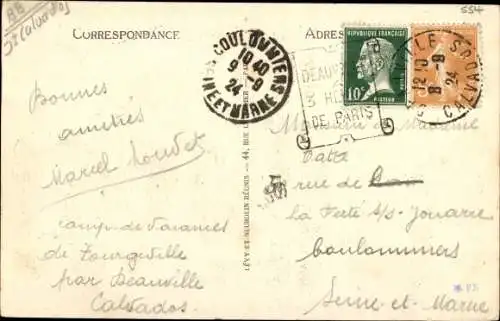 AB
St (Calvados)
554
CORRESPONDANCE
ADRES
COULOMMIERS
10 40
9 -9
24
NE ET MARNE
DEAUV
3 HE
DE PARIS
REPUBLIQUE FRANÇAISE
10c
PASTEUR
VILLE
12 10
8 -9
24
CALVA
Bonnes
amitiés
Marcel
camp de vacances
de Tourgeville
par Deauville
Calvados
LÉVY ET NEURDEIN RÉUNIS - 44, RUE
Monsieur et Madame
rue de
la Ferté s/s Jouarre
Coulommiers
Seine-et-Marne